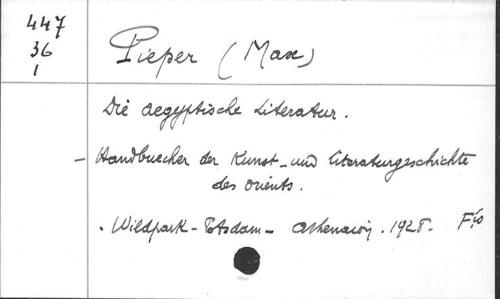 447
36
1
Pieper (Max)
Die aegyptische Literatur.
- Handbuecher der Kunst- und Literaturgeschichte
des Orients.
. Wildpark - Potsdam - Athenaion. 1928. F°